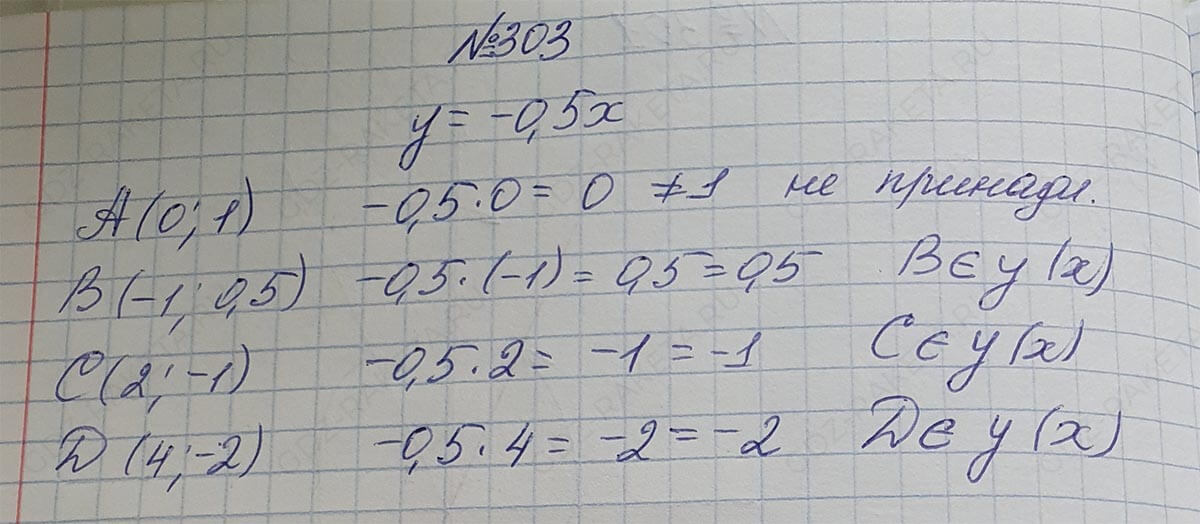 №303
y = -0,5x
A(0; 1) -0,5·0 = 0 ≠1 не принадл.
B(-1; 0,5) -0,5·(-1) = 0,5 = 0,5 B ∈ y(x)
C(2; -1) -0,5·2 = -1 = -1 C ∈ y(x)
D(4; -2) -0,5·4 = -2 = -2 D ∈ y(x)